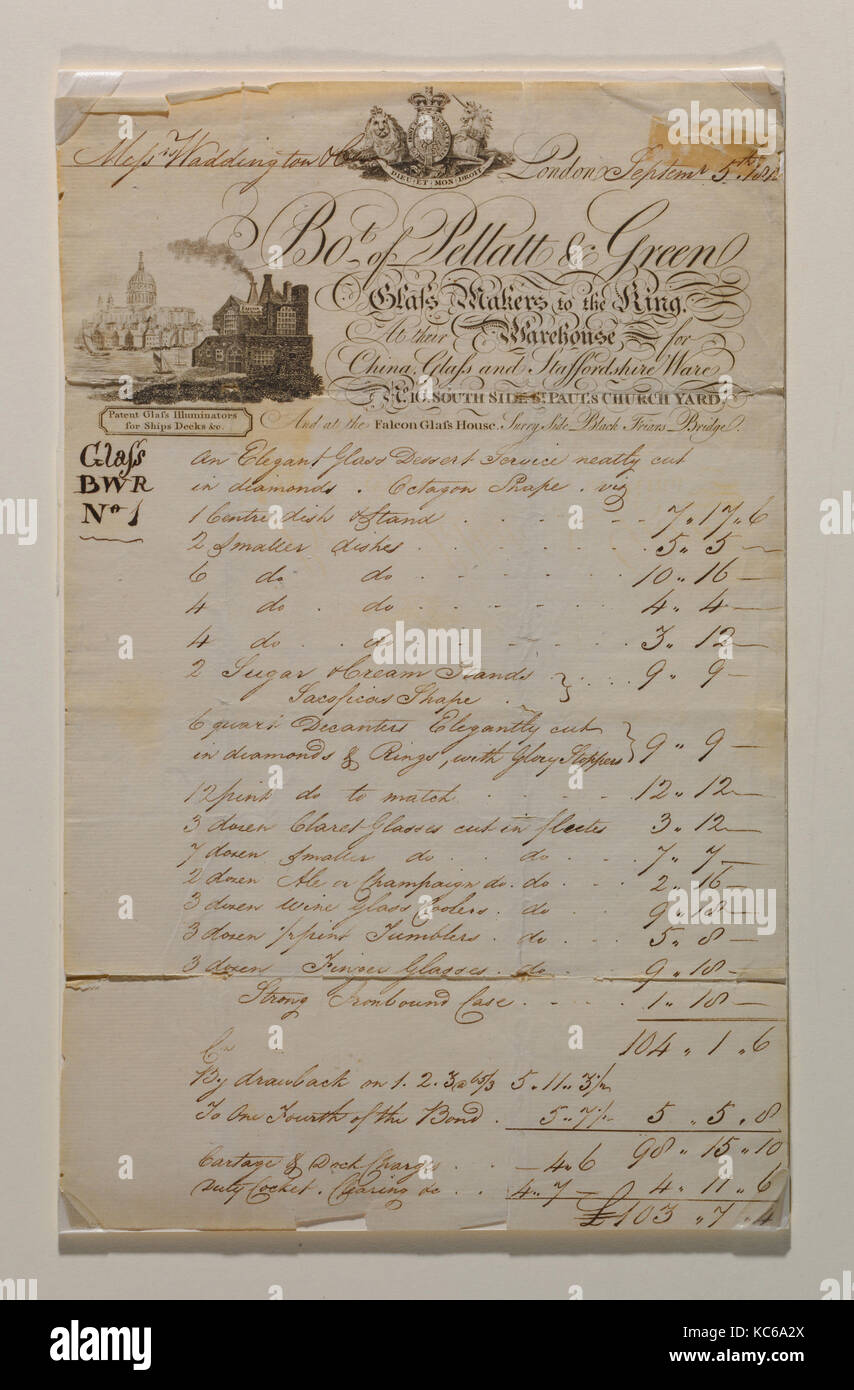 Mess.rs Waddington & Co
DIEU ET MON DROIT
London Septem.r 5th
Bo.t of Pellatt & Green
Glass Makers to the King.
At their Warehouse, for
China, Glass and Staffordshire Ware
No. 16, SOUTH SIDE St. PAULS CHURCH YARD,
Patent Glass Illuminators
for Ships Decks &c.
And at the Falcon Glass House, Surry Side Black Friars Bridge.
Glass
BWR
No 1
An Elegant Glass Dessert Service neatly cut
in diamonds . Octagon Shape . viz
1 Centre dish & Stand 7 " 17 " 6
2 Smaller dishes 5 " 5 —
6 do do 10 " 16 —
4 do do 4 " 4 —
4 do do 3 " 12 —
2 Sugar & Cream Stands 9 " 9 —
Shape
6 quart Decanters Elegantly cut
in diamonds & Rings, with Glory Stoppers 9 " 9 —
12 pint do to match 12 " 12 —
3 dozen Claret Glasses cut in flutes 3 " 12 —
7 dozen Smaller do do 7 " 7 —
2 dozen Ale or Champaign do. do 2 " 16 —
3 dozen Wine Glass Coolers . do 9 " 18 —
3 dozen 1/2 pint Tumblers . do 5 " 8 —
3 dozen Finger Glasses . do 9 " 18 —
Strong Ironbound Case 1 " 18 —
104 " 1 " 6
Cr
By drawback on 1. 2. 5 " 11 " 3
To One Fourth of the Bond . 5 " 7 5 " 5 " 8
98 " 15 " 10
Cartage & Dock Charges — 4 " 6
Duty Cocket . Clearing &c 4 " 7 — 4 " 11 " 6
£103 " 7 " 4
alamy
alamy
alamy stock photo
KC6A2X
www.alamy.com